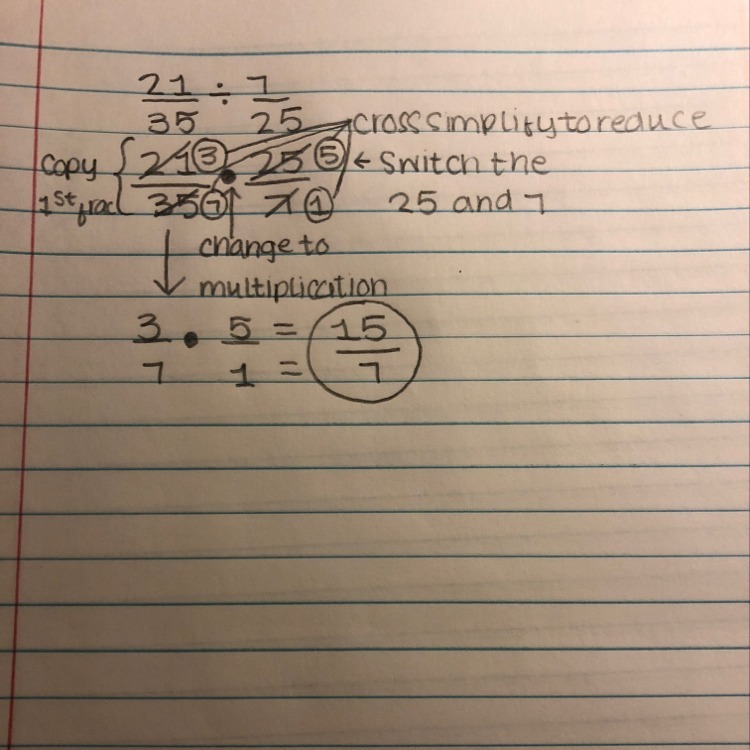 21/35 ÷ 7/25
cross simplify to reduce
copy 1st frac { 21 (3) / 35 (7) • 25 (5) / 7 (1) ← Switch the
25 and 7
change to
multiplication
3/7 • 5/1 = = 15/7